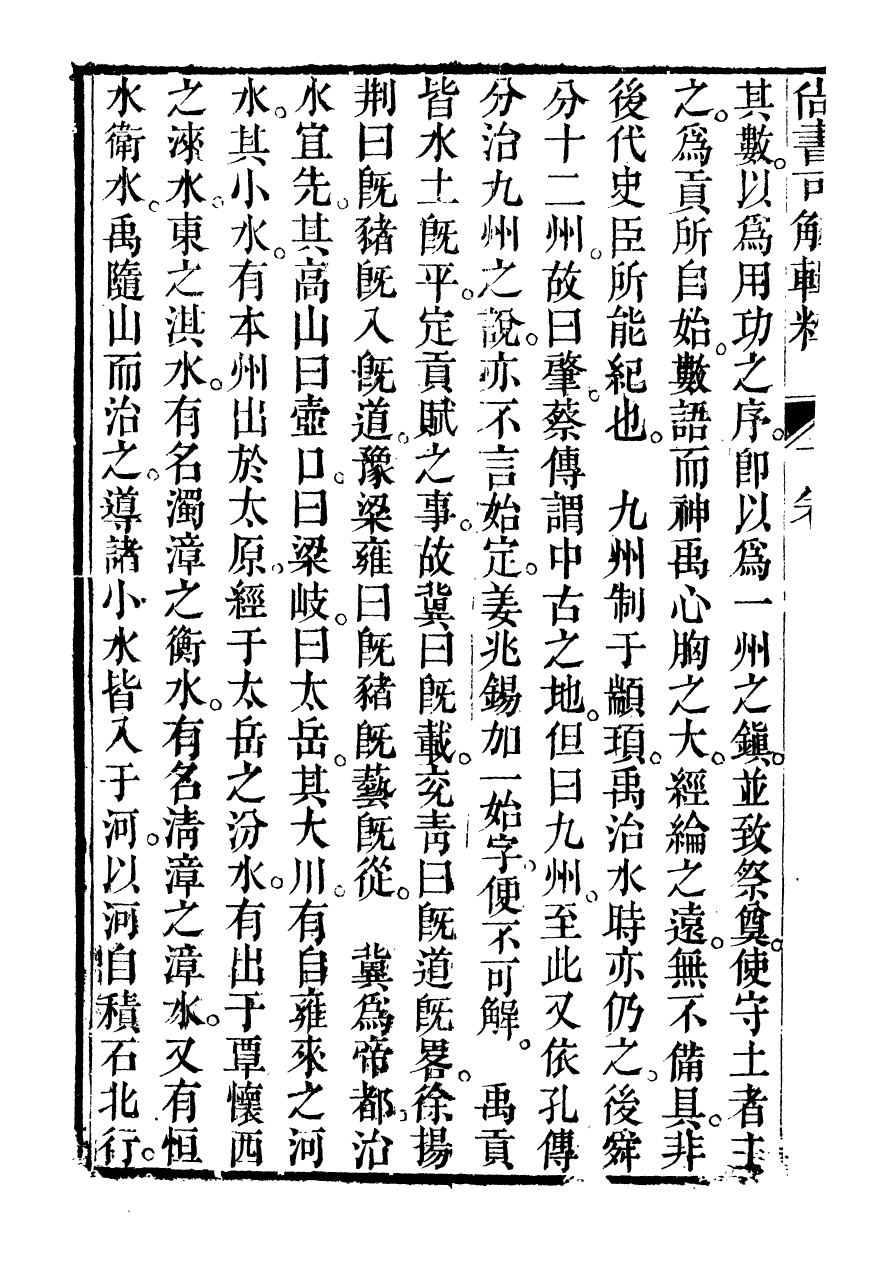 尙書可解輯粹
其數。以爲用功之序。卽以爲一州之鎭。並致祭奠。使守土者主
之。爲貢所自始。數語而神禹心胸之大。經綸之遠。無不備具。非
後代史臣所能紀也。　九州制于顓頊。禹治水時亦仍之。後舜
分十二州。故曰肇。蔡傳謂中古之地。但曰九州。至此又依孔傳
分治九州之說。亦不言始定。姜兆錫加一始字。便不可解。　禹貢
皆水土旣平。定貢賦之事。故冀曰旣載。兖靑曰旣道旣畧。徐揚
荆曰旣豬旣入旣道。豫梁雍曰旣豬旣藝旣從。　冀爲帝都。治
水宜先。其高山曰壺口。曰梁岐。曰太岳。其大川。有自雍來之河
水。其小水。有本州出於太原。經于太岳之汾水。有出于覃懷西
之淶水。東之淇水。有名濁漳之衡水。有名淸漳之漳水。又有恒
水衛水。禹隨山而治之。導諸小水皆入于河。以河自積石北行。